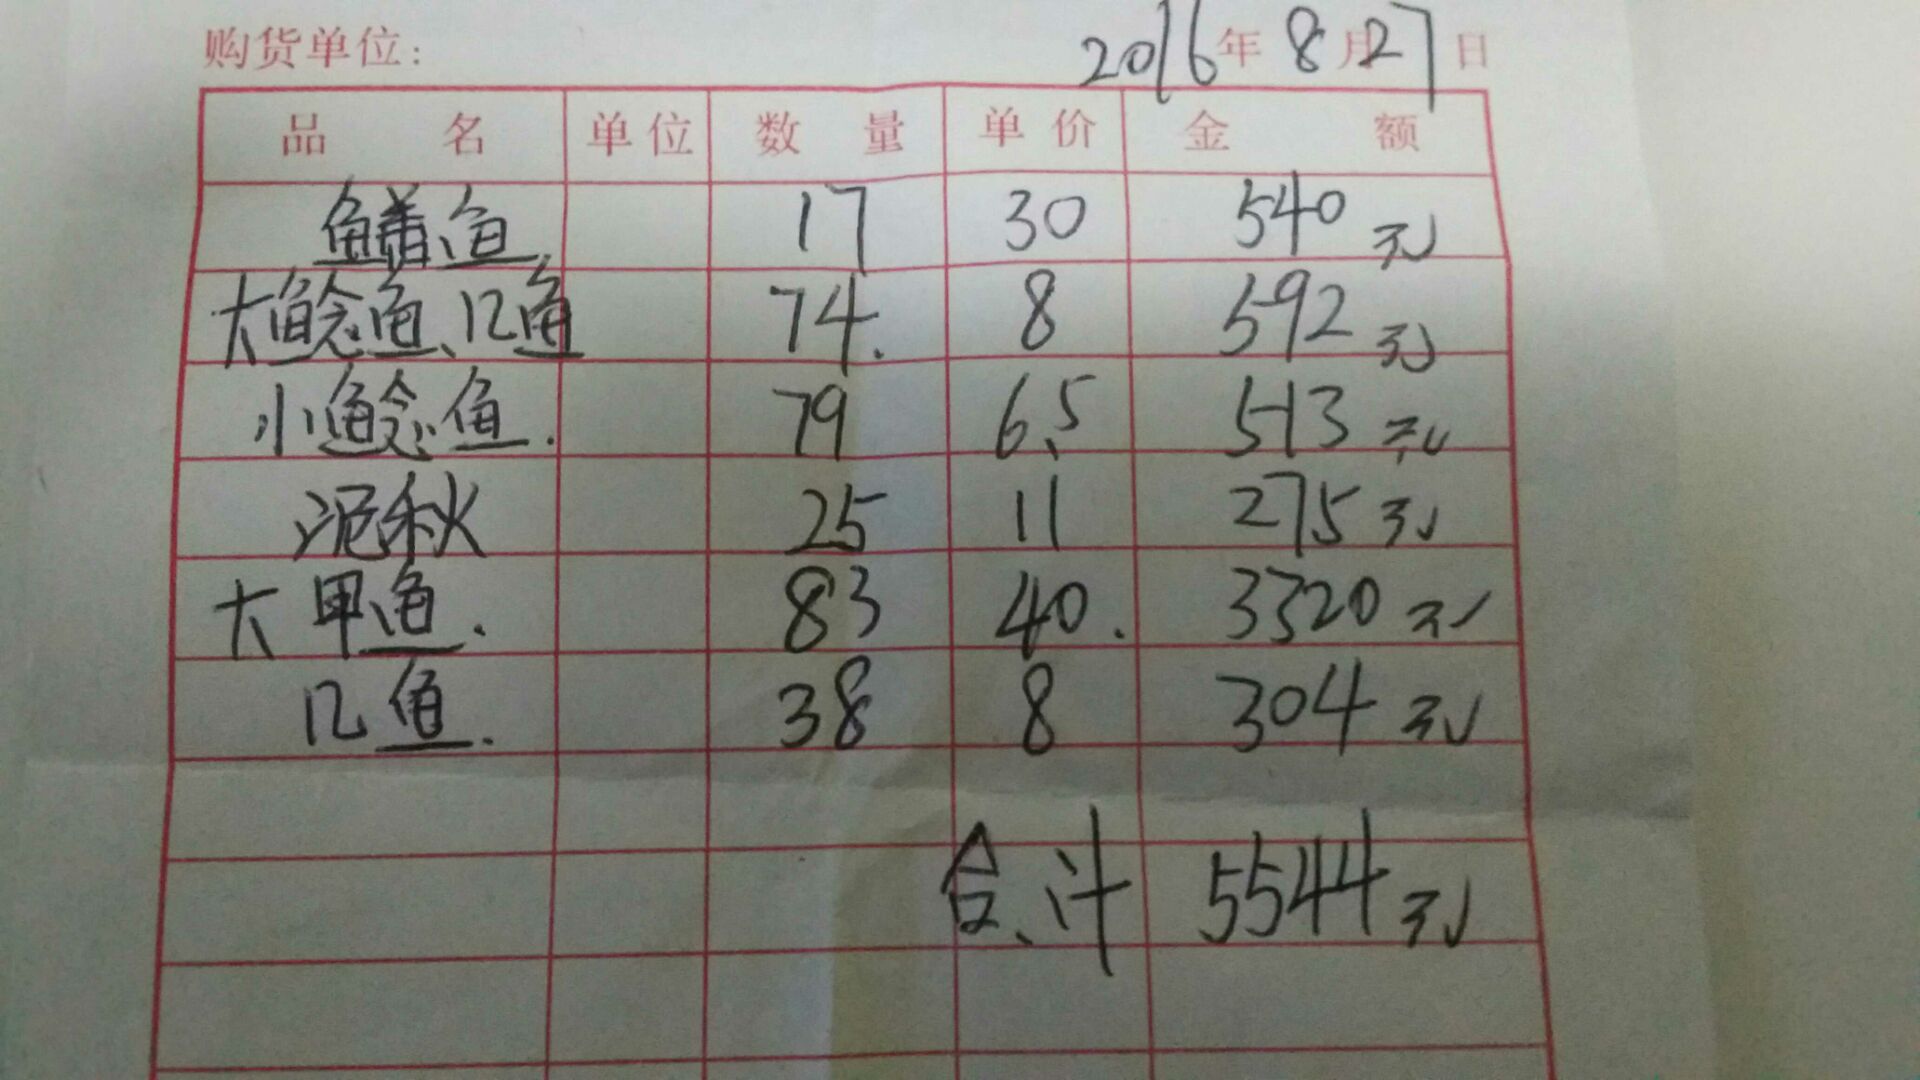 购货单位: 2016年8月27日
品名 单位 数量 单价 金额
鳝鱼 17 30 540元
大鲶鱼、几鱼 74. 8 592元
小鲶鱼. 79 6.5 513元
泥秋 25 11 275元
大甲鱼. 83 40. 3320元
几鱼. 38 8 304元
合计 5544元